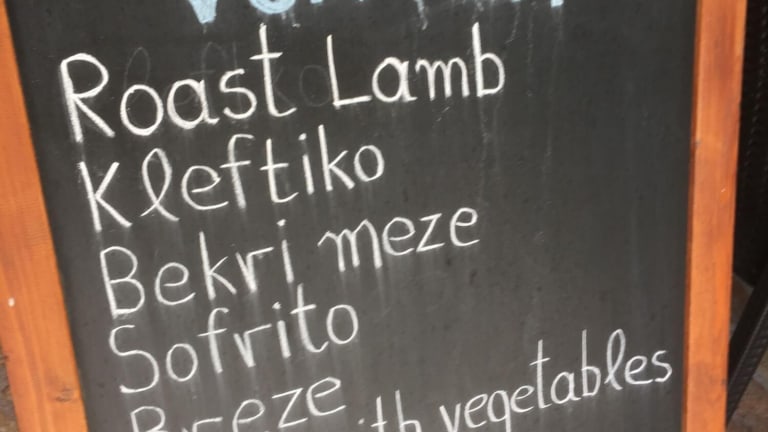 Roast Lamb
Kleftiko
Bekri meze
Sofrito
Breze with vegetables